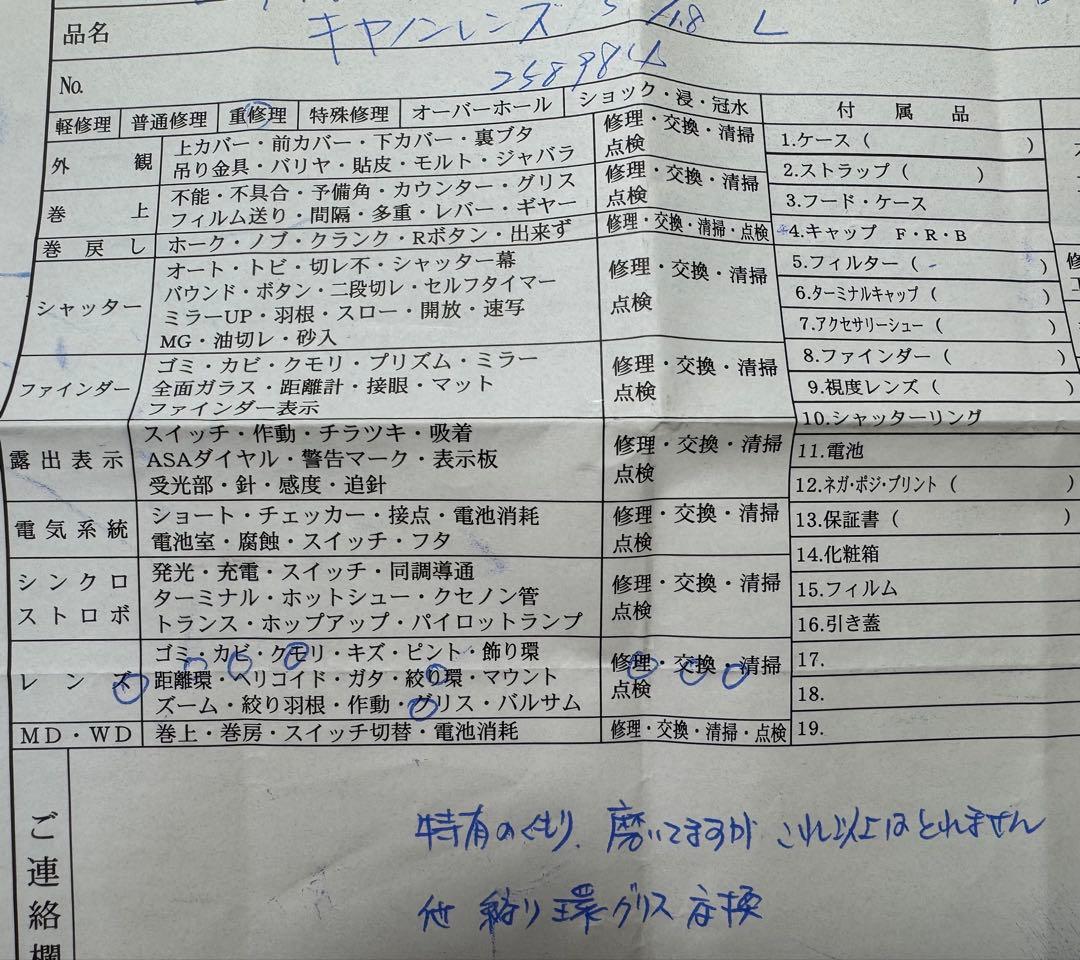 品名 キヤノンレンズ 5 /1.8 L
No. 258984
軽修理 普通修理 重修理 特殊修理 オーバーホール ショック・浸・冠水 付属品
外観 上カバー・前カバー・下カバー・裏ブタ 修理・交換・清掃 1.ケース ( )
吊り金具・バリヤ・貼皮・モルト・ジャバラ 点検 2.ストラップ ( )
巻上 不能・不具合・予備角・カウンター・グリス 修理・交換・清掃 3.フード・ケース
フィルム送り・間隔・多重・レバー・ギヤー 点検
巻戻し ホーク・ノブ・クランク・Rボタン・出来ず 修理・交換・清掃・点検 4.キャップ F・R・B
シャッター オート・トビ・切レ不・シャッター幕 修理・交換・清掃 5.フィルター ( )
バウンド・ボタン・二段切レ・セルフタイマー 点検 6.ターミナルキャップ ( )
ミラーUP・羽根・スロー・開放・速写 7.アクセサリーシュー ( )
MG・油切レ・砂入
ファインダー ゴミ・カビ・クモリ・プリズム・ミラー 修理・交換・清掃 8.ファインダー ( )
全面ガラス・距離計・接眼・マット 点検 9.視度レンズ ( )
ファインダー表示 10.シャッターリング
露出表示 スイッチ・作動・チラツキ・吸着 修理・交換・清掃 11.電池
ASAダイヤル・警告マーク・表示板 点検
受光部・針・感度・追針 12.ネガ・ポジ・プリント ( )
電気系統 ショート・チェッカー・接点・電池消耗 修理・交換・清掃 13.保証書 ( )
電池室・腐蝕・スイッチ・フタ 点検 14.化粧箱
シンクロ 発光・充電・スイッチ・同調導通 修理・交換・清掃 15.フィルム
ストロボ ターミナル・ホットシュー・クセノン管 点検
トランス・ホップアップ・パイロットランプ 16.引き蓋
レンズ ゴミ・カビ・クモリ・キズ・ピント・飾り環 修理・交換・清掃 17.
距離環・ヘリコイド・ガタ・絞り環・マウント 点検 18.
ズーム・絞り羽根・作動・グリス・バルサム
MD・WD 巻上・巻房・スイッチ切替・電池消耗 修理・交換・清掃・点検 19.
ご連絡欄
特有のくもり、磨いてますが これ以上はとれません
他 絞り環グリス交換